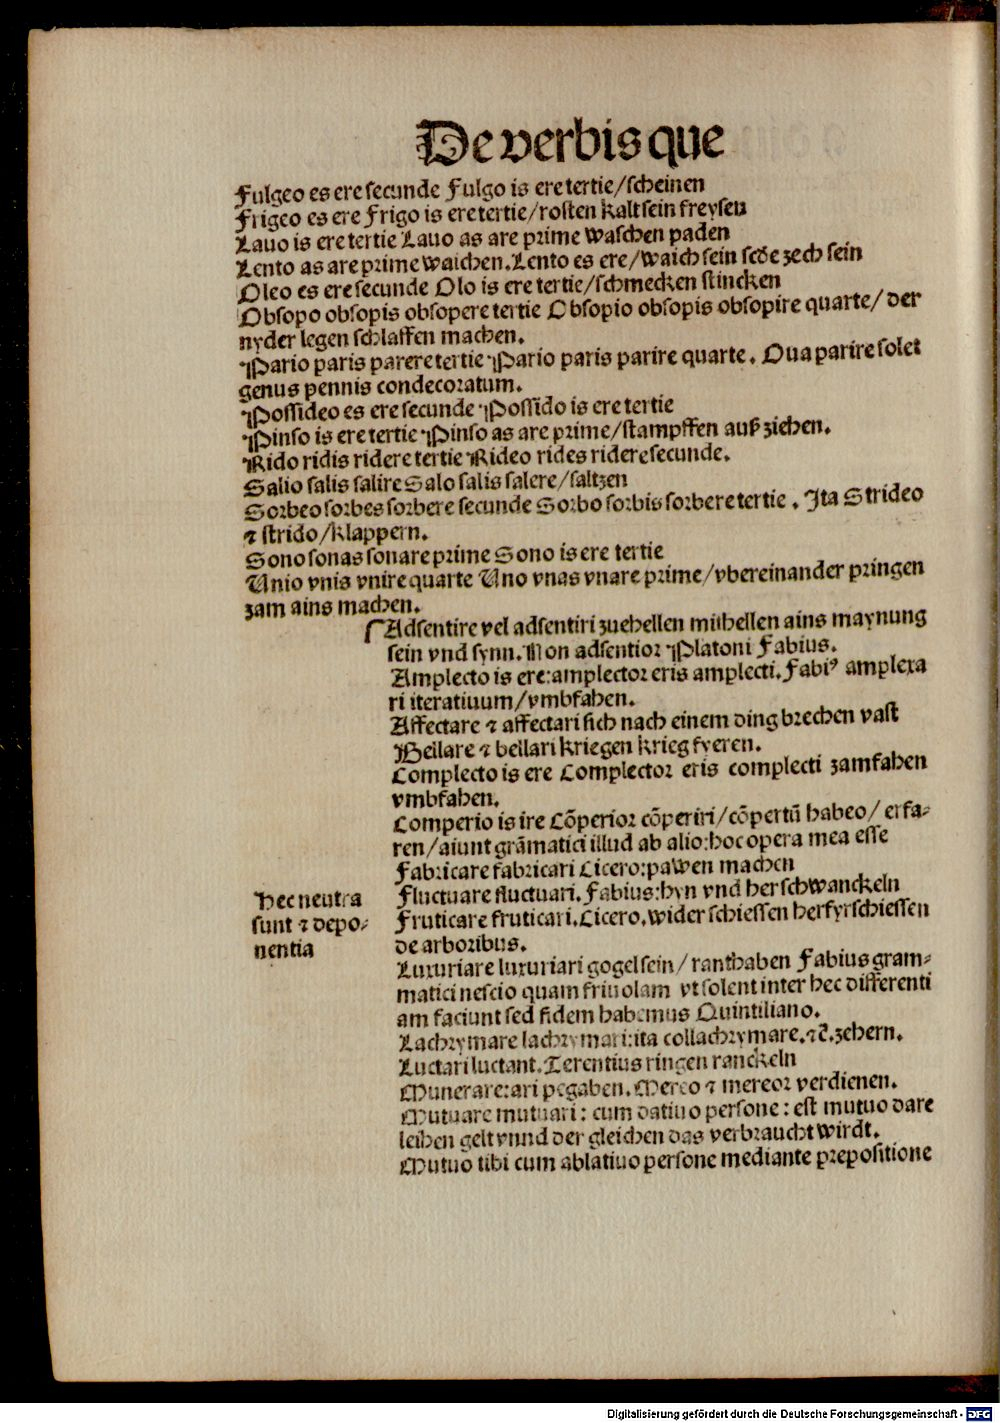 De verbis que
Fulgeo es ere secunde Fulgo is ere tertie/scheinen
Frigeo es ere Frigo is ere tertie/rosten kalt sein freysen
Lauo is ere tertie Lauo as are prime waschen paden
Lento as are prime waichen. Lento es ere/waich sein secde zech sein
Oleo es ere secunde Olo is ere tertie/schmecken stincken
Obsopo obsopis obsopere tertie Obsopio obsopis obsopire quarte/ der
nyder legen schlaffen machen.
Pario paris parere tertie Pario paris parire quarte. Oua parire solet
genus pennis condecoratum.
Possideo es ere secunde Possido is ere tertie
Pinso is ere tertie Pinso as are prime/stampffen auß ziehen.
Rido ridis ridere tertie Rideo rides ridere secunde.
Salio salis salire Salo salis salere/saltzen
Sorbeo sorbes sorbere secunde Sorbo sorbis sorbere tertie . Ita Strideo
⁊ strido/klappern.
Sono sonas sonare prime Sono is ere tertie
Unio vnis vnire quarte Uno vnas vnare prime/vbereinander pringen
zam ains machen.
Adsentire vel adsentiri zuehellen mithellen ains maynung
sein vnd synn. Non adsentior Platoni Fabius.
Amplecto is ere:amplector eris amplecti. Fabiꝰ amplexa
ri iteratiuum/vmbfahen.
Affectare ⁊ affectari sich nach einem ding brechen vast
Bellare ⁊ bellari kriegen krieg fyeren.
Complecto is ere Complector eris complecti zamfahen
vmbfahen.
Comperio is ire Cõperior cõperiri/cõpertũ habeo/ erfa⸗
ren/aiunt grãmatici illud ab alio:hoc opera mea esse
Fabricare fabricari Cicero:pawen machen
Hec neutra
sunt ⁊ depo⸗
nentia
Fluctuare fluctuari. Fabius:hyn vnd her schwanckeln
Fruticare fruticari. Cicero. wider schiessen herfyrschiessen
de arboribus.
Luxuriare luxuriari gogel sein/ ranthaben Fabius gram⸗
matici nescio quam friuolam vt solent inter hec differenti
am faciunt sed fidem habemus Quintiliano.
Lachrymare lachrymari:ita collachrymare.⁊c̃. zehern.
Luctari luctant. Terentius ringen ranckeln
Munerare:ari pegaben. Mereo ⁊ mereor verdienen.
Mutuare mutuari : cum datiuo persone : est mutuo dare
leihen gelt vnnd der gleichen das verbraucht wirdt.
Mutuo tibi cum ablatiuo persone mediante prepositione
Digitalisierung gefördert durch die Deutsche Forschungsgemeinschaft - DFG